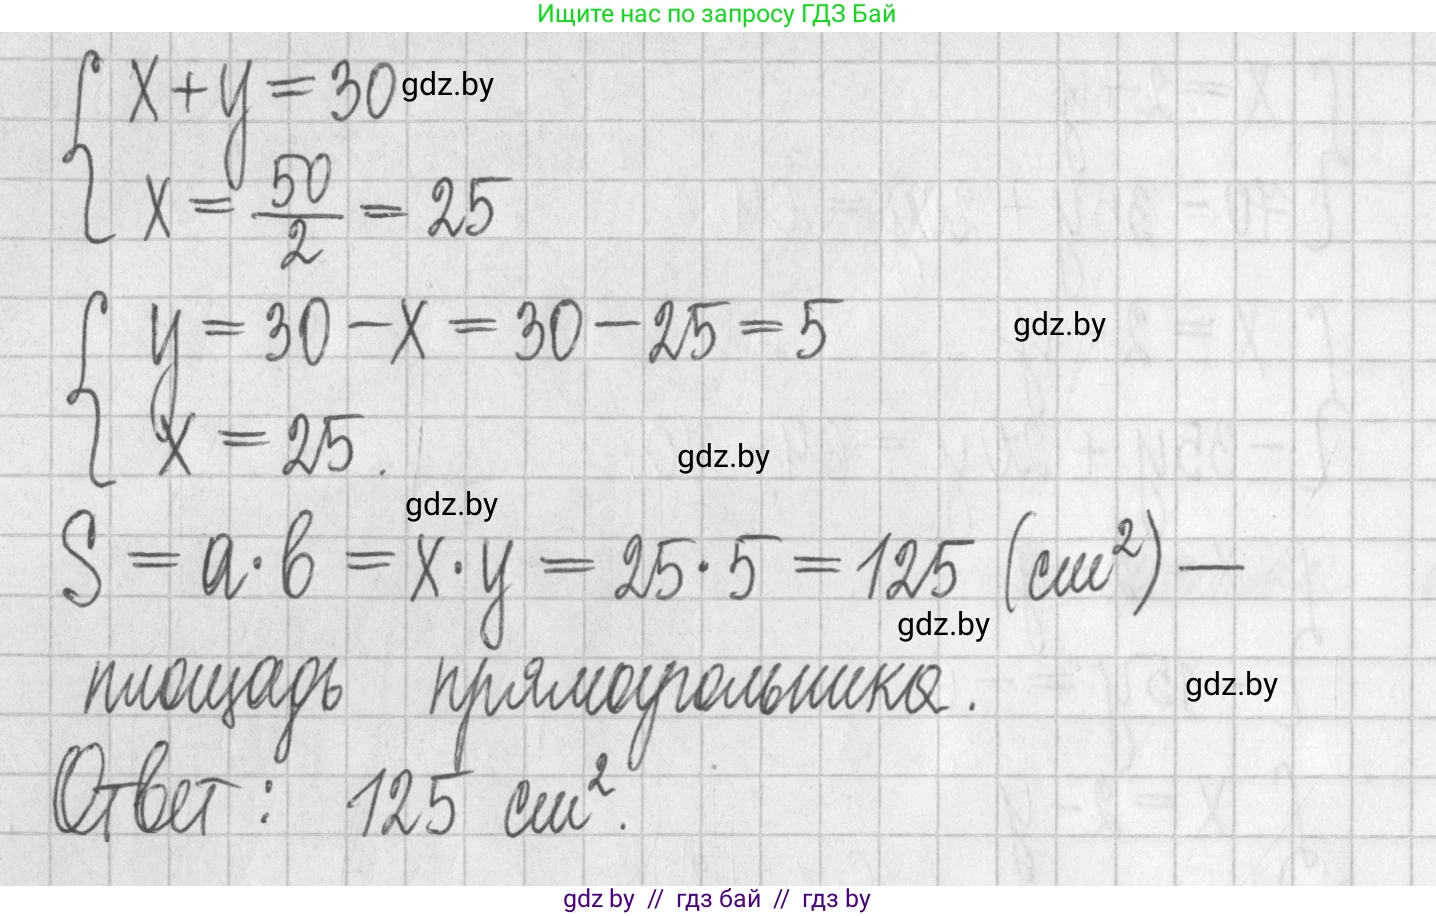 Ищите нас по запросу ГДЗ Бай
x + y = 30 gdz.by
x = 50/2 = 25
y = 30 - x = 30 - 25 = 5
gdz.by
x = 25.
gdz.by
gdz.by
S = a · b = x · y = 25 · 5 = 125 (см²) —
gdz.by
площадь прямоугольника.
gdz.by
Ответ: 125 см².
gdz.by // гдз бай // гдз by